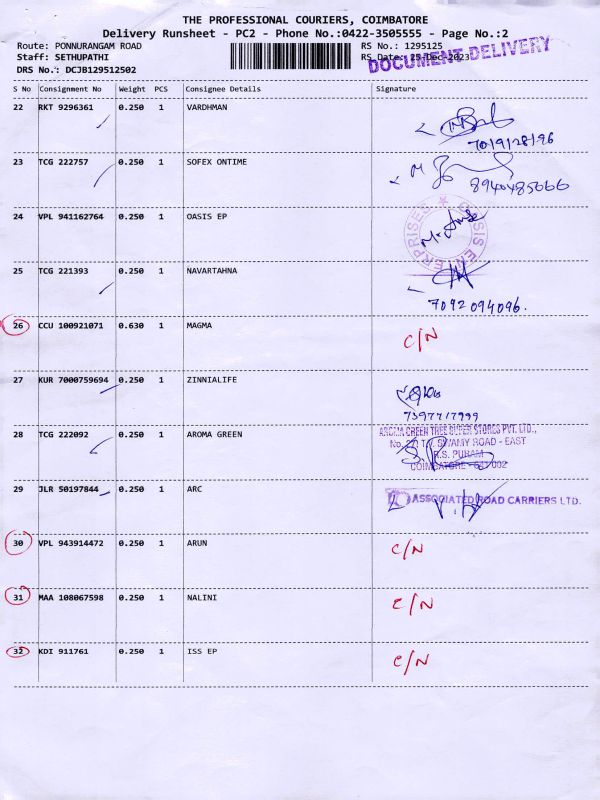 THE PROFESSIONAL COURIERS, COIMBATORE
Delivery Runsheet - PC2 - Phone No.:0422-3505555 - Page No.:2
Route: PONNURANGAM ROAD
RS No.: 1295125
Staff: SETHUPATHI
RS Date: 25-Dec-2023
DOCUMENT DELIVERY
DRS No.: DCJB129512502
S No Consignment No Weight PCS Consignee Details Signature
22 RKT 9296361 0.250 1 VARDHMAN
7019128196
23 TCG 222757 0.250 1 SOFEX ONTIME
8940485666
24 VPL 941162764 0.250 1 OASIS EP
OASIS ENTERPRISES
25 TCG 221393 0.250 1 NAVARTAHNA
7092094096.
26 CCU 100921071 0.630 1 MAGMA C/N
27 KUR 7000759694 0.250 1 ZINNIALIFE
7397717999
28 TCG 222092 0.250 1 AROMA GREEN
AROMA GREEN TREE SUPER STORES PVT. LTD.,
SWAMY ROAD - EAST
R.S. PURAM
COIMBATORE - 641 002
29 JLR 50197844 0.250 1 ARC
ASSOCIATED ROAD CARRIERS LTD.
30 VPL 943914472 0.250 1 ARUN C/N
31 MAA 108067598 0.250 1 NALINI C/N
32 KDI 911761 0.250 1 ISS EP C/N